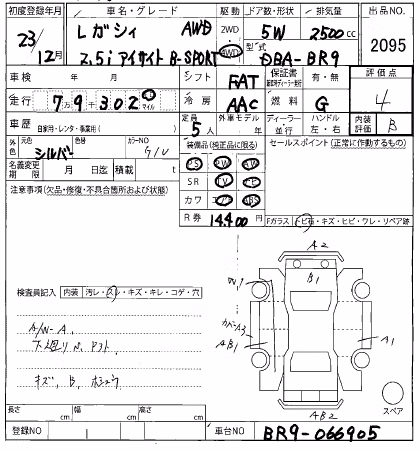 初度登録年月 車名・グレード 駆動 ドア数・形状 排気量 出品NO.
23/12月 レガシィ AWD 2WD 4WD 5W 2500cc 2095
2.5i アイサイト B-SPORT 型式 DBA-BR9
車検 年 月 シフト FAT 保証書 有・無 評価点
走行 7万9千302 km マイル 冷房 AAC 燃料 G 4
車歴 自家用・レンタ・事業用( ) 定員 5人 外車モデル 年 ディーラー・並行 ハンドル 左・右 内装評価 B
外色 元色 シルバー 色替 カラーNO G1U 装備品(純正品に限る) セールスポイント(正常に作動するもの)
名義変更期限 月 日迄 積載 t PS PW AW
注意事項(欠品・修復・不具合箇所および状態) SR TV ナビ
カワ エアB ABS
R券 14,400 Fガラス 飛石・キズ・ヒビ・ワレ・リペア跡
A2
B1
W1
カバーA3
AB1
A1
AB2
検査員記入 内装 汚レ・スレ・キズ・キレ・コゲ・穴
A/W-A.
下廻り
キズ、B、
スペア
長さ cm 幅 cm 高さ cm
登録NO 車台NO BR9-066905